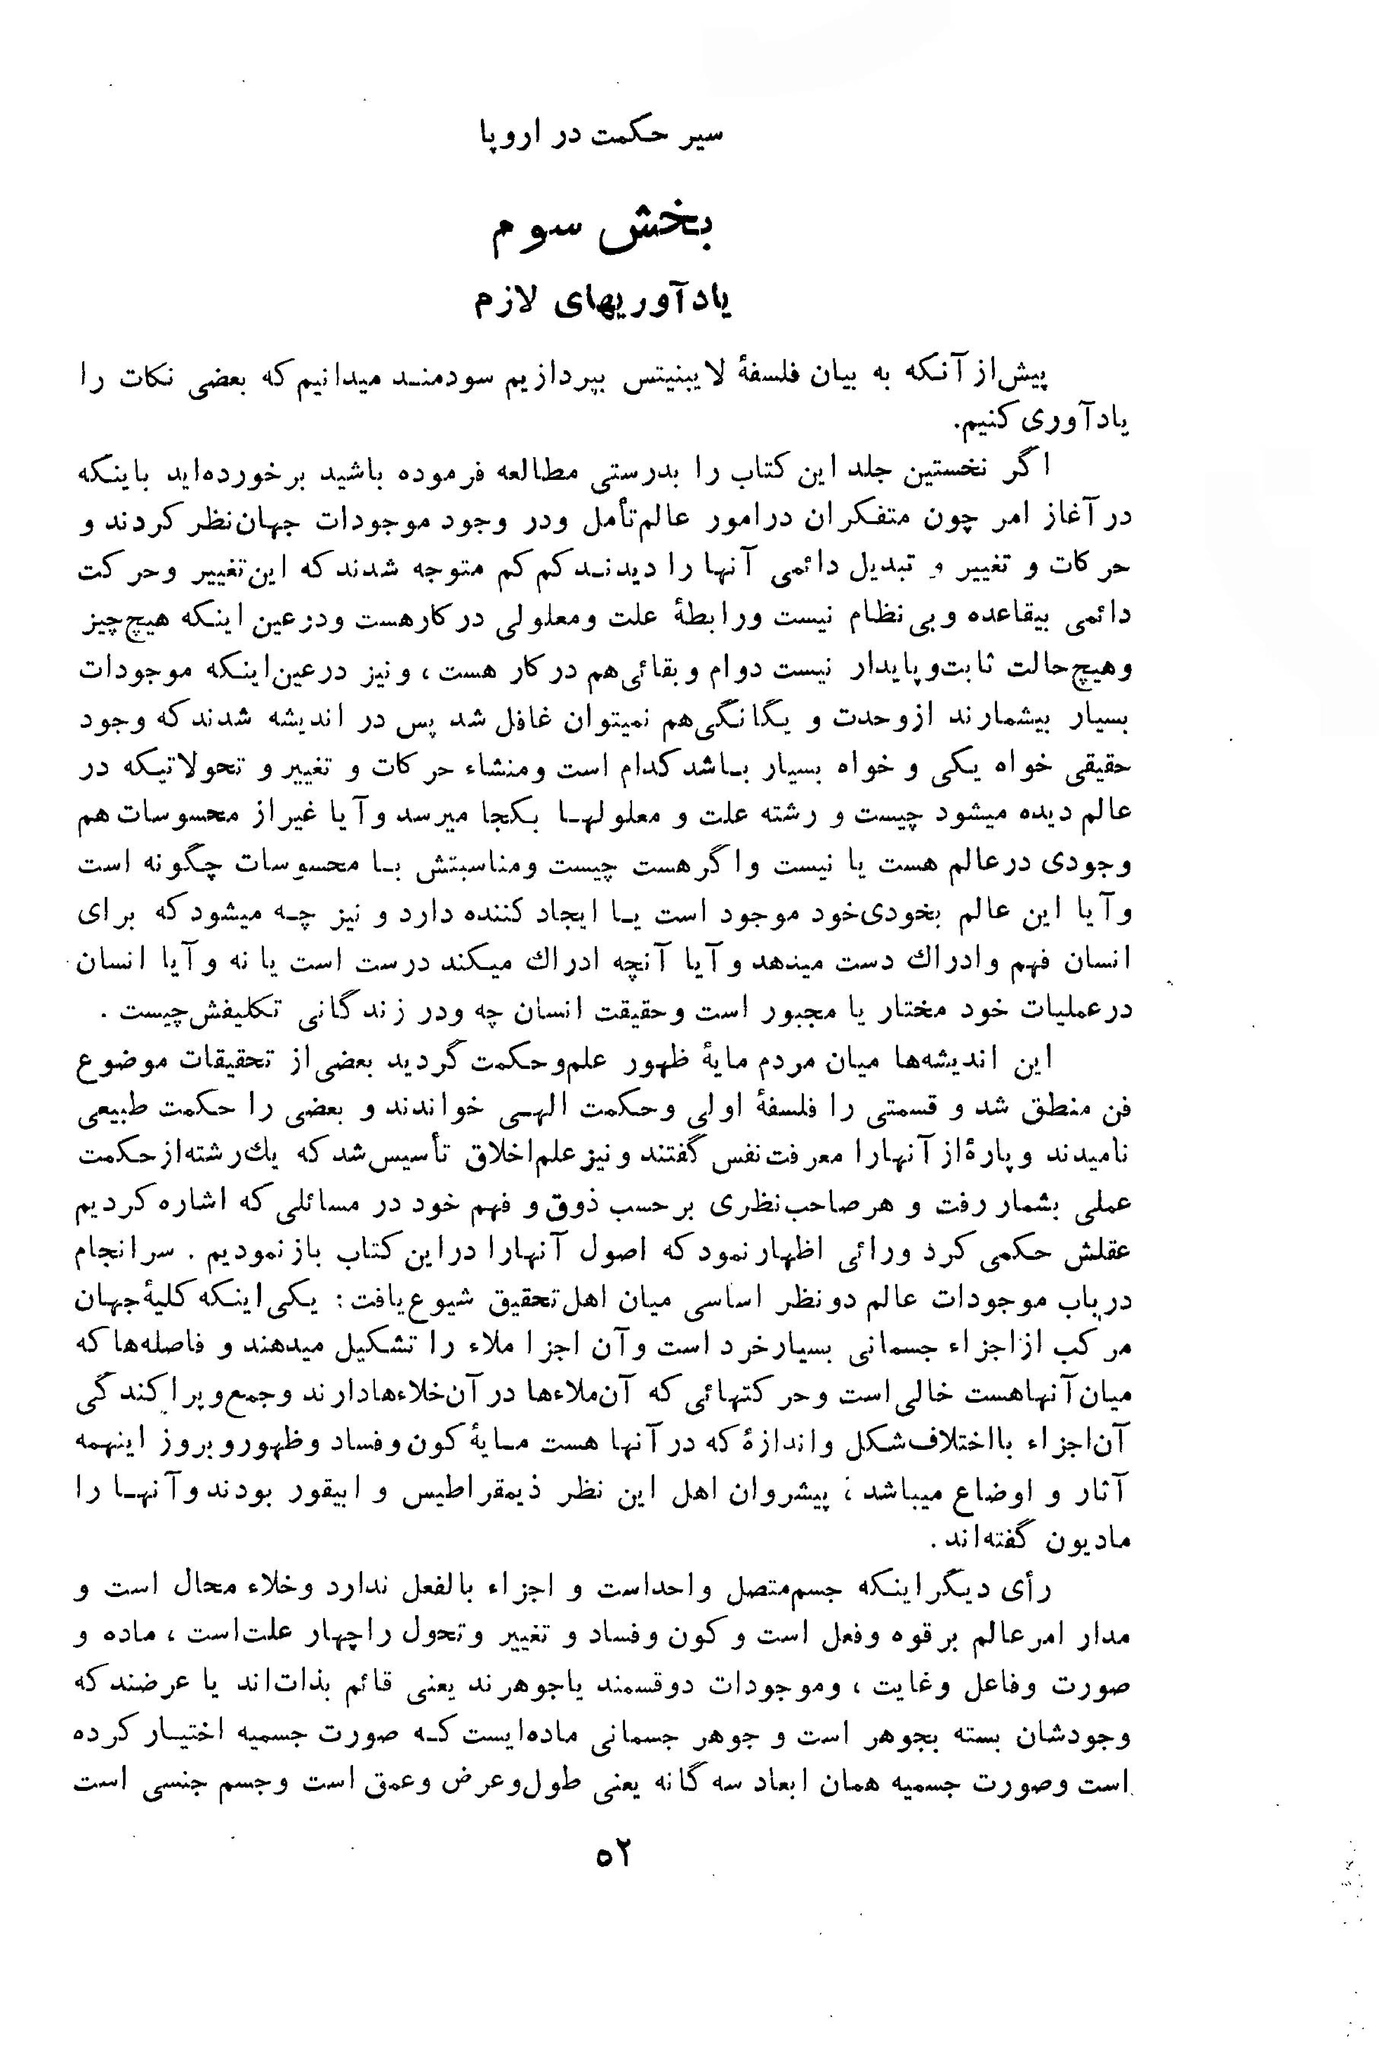 سیر حکمت در اروپا
بخش سوم
یادآوریهای لازم
پیش‌از آنکه به بیان فلسفهٔ لایبنیتس بپردازیم سودمند میدانیم که بعضی نکات را
یادآوری کنیم.
اگر نخستین جلد این کتاب را بدرستی مطالعه فرموده باشید برخورده‌اید باینکه
در آغاز امر چون متفکران در امور عالم تأمل و در وجود موجودات جهان نظر کردند و
حرکات و تغییر و تبدیل دائمی آنها را دیدند کم کم متوجه شدند که این تغییر و حرکت
دائمی بیقاعده و بی نظام نیست و رابطهٔ علت و معلولی در کار هست و در عین اینکه هیچ چیز
و هیچ حالت ثابت و پایدار نیست دوام و بقائی هم در کار هست، و نیز در عین اینکه موجودات
بسیار بیشمارند از وحدت و یگانگی هم نمیتوان غافل شد پس در اندیشه شدند که وجود
حقیقی خواه یکی و خواه بسیار باشد کدام است و منشاء حرکات و تغییر و تحولاتیکه در
عالم دیده میشود چیست و رشته علت و معلولها بکجا میرسد و آیا غیر از محسوسات هم
وجودی در عالم هست یا نیست و اگر هست چیست و مناسبتش با محسوسات چگونه است
و آیا این عالم بخودی‌خود موجود است یا ایجاد کننده دارد و نیز چه میشود که برای
انسان فهم و ادراك دست میدهد و آیا آنچه ادراك میکند درست است یا نه و آیا انسان
در عملیات خود مختار یا مجبور است و حقیقت انسان چه و در زندگانی تکلیفش چیست .
این اندیشه‌ها میان مردم مایهٔ ظهور علم و حکمت گردید بعضی از تحقیقات موضوع
فن منطق شد و قسمتی را فلسفهٔ اولی و حکمت الهی خواندند و بعضی را حکمت طبیعی
نامیدند و پارهٔ از آنها را معرفت نفس گفتند و نیز علم اخلاق تأسیس شد که یك رشته از حکمت
عملی بشمار رفت و هر صاحب نظری برحسب ذوق و فهم خود در مسائلی که اشاره کردیم
عقلش حکمی کرد و رائی اظهار نمود که اصول آنها را در این کتاب باز نمودیم . سرانجام
در باب موجودات عالم دو نظر اساسی میان اهل تحقیق شیوع یافت : یکی اینکه کلیهٔ جهان
مرکب از اجزاء جسمانی بسیار خرد است و آن اجزا ملاء را تشکیل میدهند و فاصله‌ها که
میان آنها هست خالی است و حرکتهائی که آن ملاءها در آن خلاءها دارند و جمع و پراکندگی
آن اجزاء با اختلاف شکل و اندازهٔ که در آنها هست مایهٔ کون و فساد و ظهور و بروز اینهمه
آثار و اوضاع میباشد؛ پیشروان اهل این نظر ذیمقراطیس و ابیقور بودند و آنها را
مادیون گفته‌اند .
رأی دیگر اینکه جسم متصل واحد است و اجزاء بالفعل ندارد و خلاء محال است و
مدار امر عالم بر قوه و فعل است و کون و فساد و تغییر و تحول را چهار علت است، ماده و
صورت و فاعل و غایت، و موجودات دو قسمند یا جوهرند یعنی قائم بذات‌اند یا عرضند که
وجودشان بسته بجوهر است و جوهر جسمانی ماده‌ایست که صورت جسمیه اختیار کرده
است و صورت جسمیه همان ابعاد سه گانه یعنی طول و عرض و عمق است و جسم جنسی است
۵۲